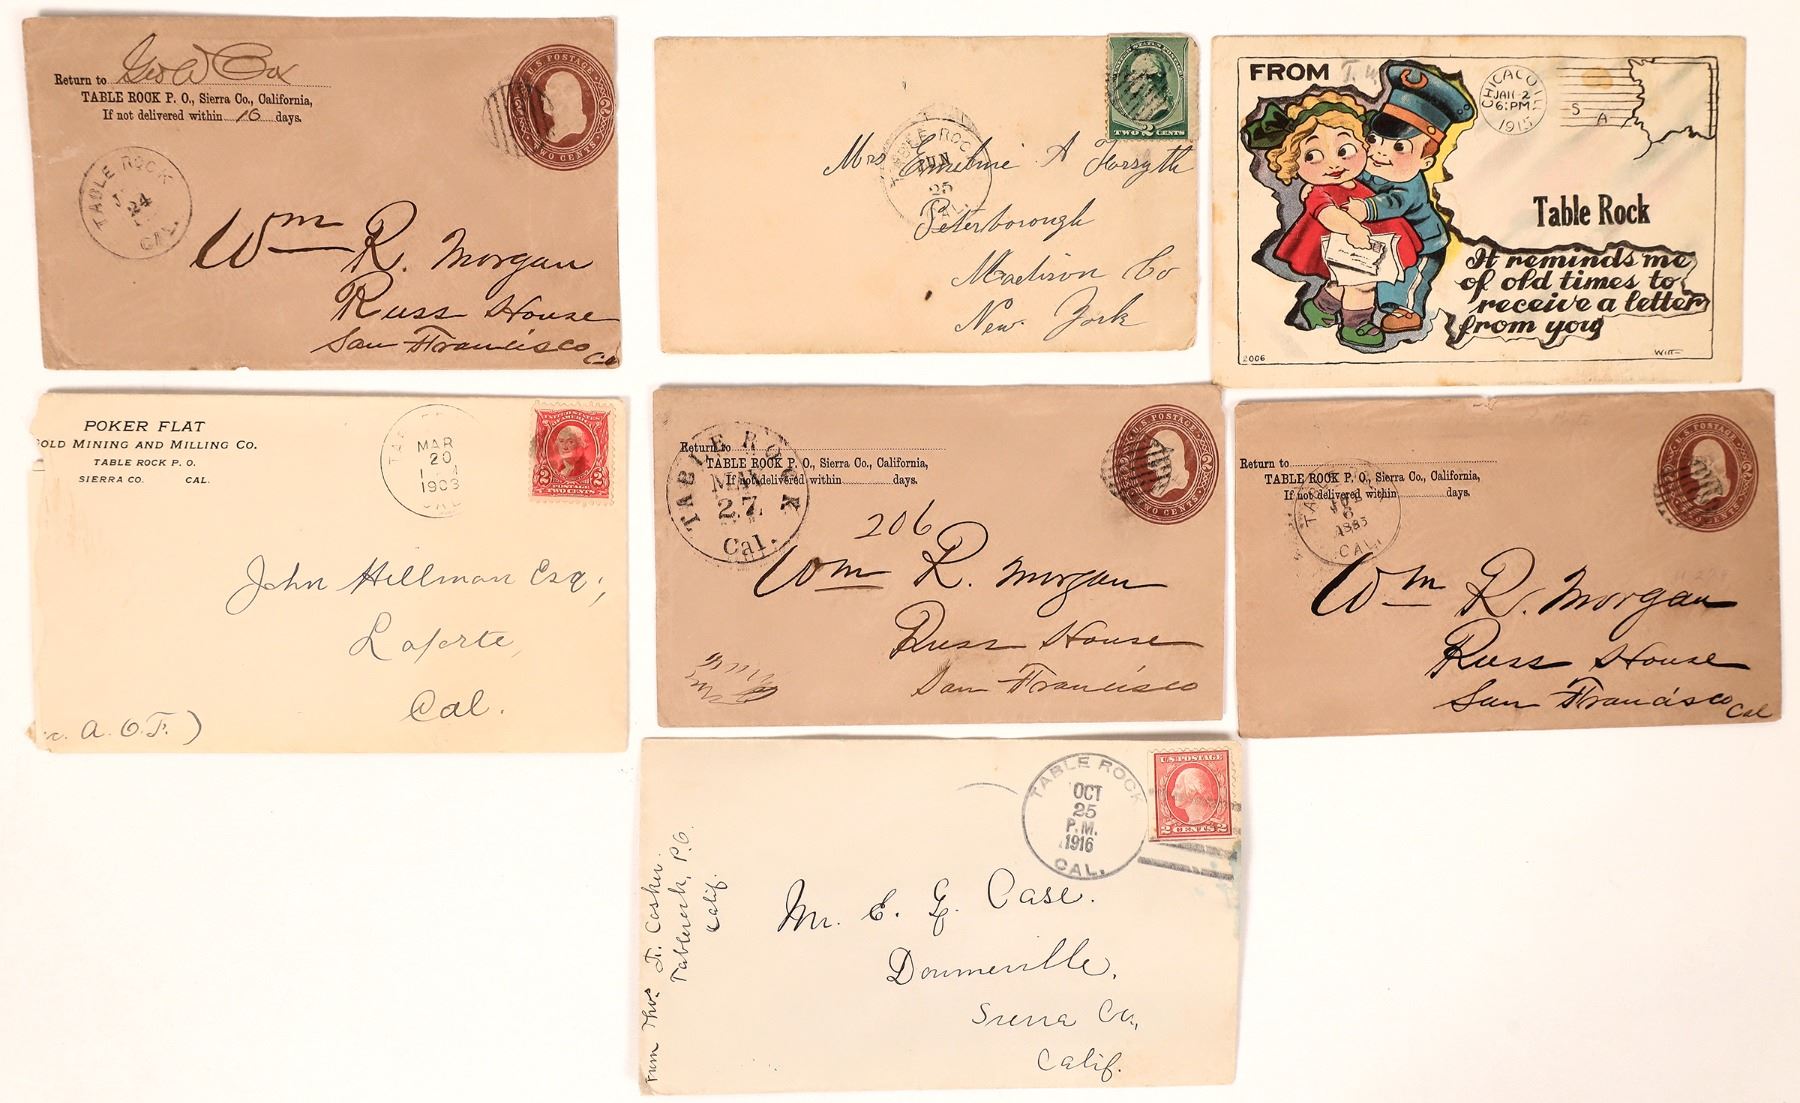 Return to Geo W Cox
TABLE ROCK P. O., Sierra Co., California,
If not delivered within 10 days.
U.S. POSTAGE
TWO CENTS
TABLE ROCK
24
CAL.
Wm R. Morgan
Russ House
San Francisco
Cal
TWO 2 CENTS
TABLE ROCK
JUN
25
CAL.
Mrs Emeline A Forsyth
Peterborough
Madison Co
New York
FROM
CHICAGO ILL
JAN 2
6 PM
1915
S A
Table Rock
It reminds me
of old times to
receive a letter
from you
2006
WITT
POKER FLAT
GOLD MINING AND MILLING CO.
TABLE ROCK P. O.
SIERRA CO. CAL.
MAR
20
1903
CAL
UNITED STATES OF AMERICA
POSTAGE
2 TWO CENTS 2
John Hillman Esq;
Laporte,
Cal.
A. O. F. )
Return to
TABLE ROCK P. O., Sierra Co., California,
If not delivered within days.
U.S. POSTAGE
TWO CENTS
TABLE ROCK
MAR
27
Cal.
206
Wm R. Morgan
Russ House
San Francisco
Return to
TABLE ROCK P. O., Sierra Co., California,
If not delivered within days.
U.S. POSTAGE
TWO CENTS
TABLE
6
1885
CAL.
Wm R. Morgan
Russ House
San Francisco
Cal
TABLE ROCK
OCT
25
P.M.
1916
CAL.
U.S. POSTAGE
2 CENTS 2
From Thos. J. Cosker.
Tablerock, P.O.
Calif.
Mr. E. G. Case.
Downieville,
Sierra Co.,
Calif.